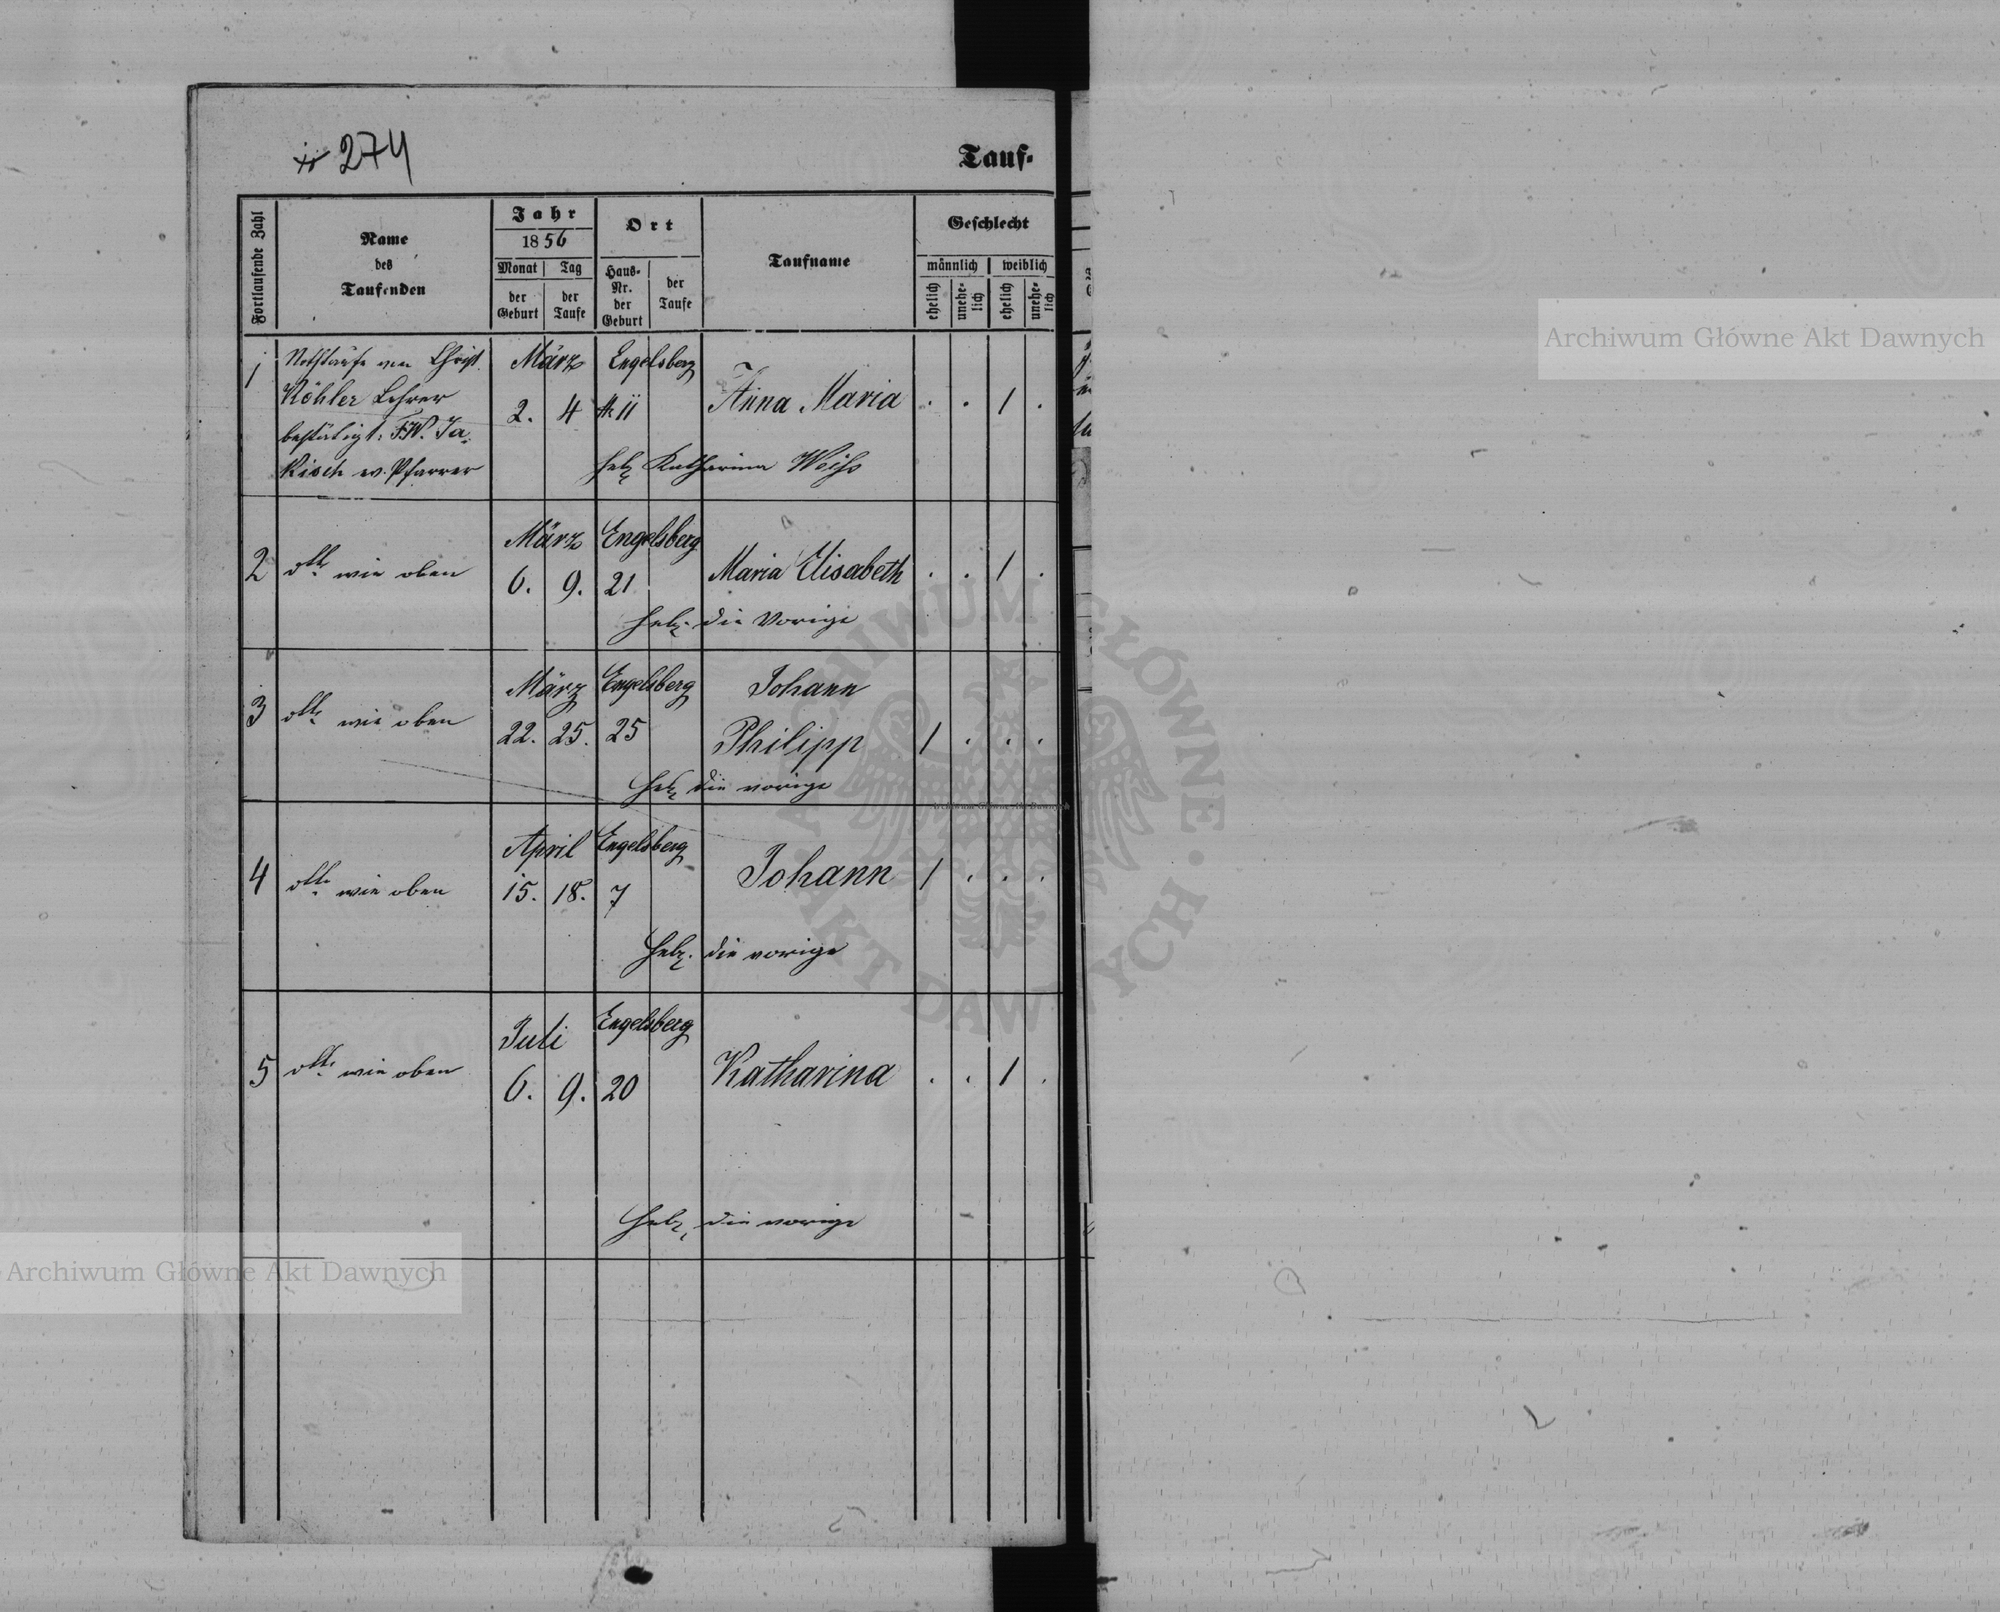 274
Tauf-
Fortlaufende Zahl
Name
des
Taufenden
Jahr
1856
Monat Tag
der Geburt
der Taufe
Ort
Haus-Nr. der Geburt
der Taufe
Taufname
Geschlecht
männlich weiblich
ehelich unehe-lich ehelich unehe-lich
1 Nothtaufe von Christ. März Engelsberg
Köhler Lehrer 2. 4 11 Anna Maria . . 1 .
bestätigt: F.W. Ja-
kisch ev. Pfarrer Heb. Katharina Weiß
März Engelsberg
2 dtto wie oben 6. 9. 21 Maria Elisabeth . . 1 .
Heb. die Vorige
März Engelsberg Johann
3 dtto wie oben 22. 25. 25 Philipp 1 . . .
Heb. die vorige
April Engelsberg
4 dtto wie oben 15. 18. 7 Johann 1 . . .
Heb. die vorige
Juli Engelsberg
5 dtto wie oben 6. 9. 20 Katharina . . 1 .
Heb. die vorige
Archiwum Główne Akt Dawnych
Archiwum Główne Akt Dawnych
Archiwum Główne Akt Dawnych
ARCHIWUM GŁÓWNE · AKT DAWNYCH ·